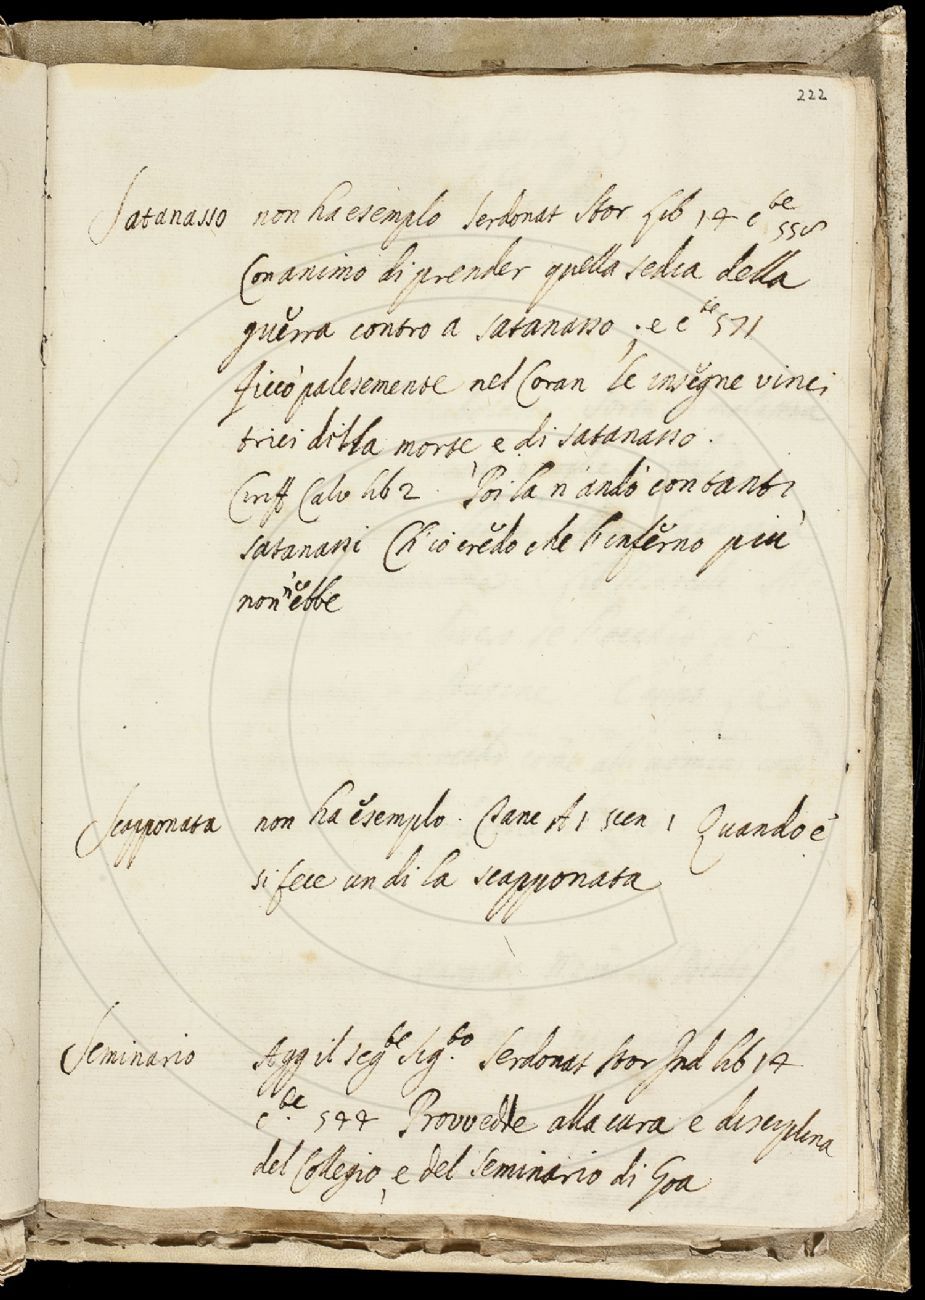 222
Satanasso non ha esemplo Serdonat Stor Lib 14 c te 558
Con animo di prender quella sedia della
guerra contro a satanasso; e c te 571
ficcò palesemente nel Coran le insegne vinci
trici della morte e di satanasso.
Ciriff Calv lib 2. Poi la n'andò con tanti
satanassi Ch'io credo che l'inferno più
non n'ebbe
Scapponata non ha esemplo. Cane At 1 scen 1 Quando e'
si fece un dì la scapponata
Seminario Agg il seg te sig. to Serdonat Stor Ind lib 14
c. te 544 Provvedde alla cura e disciplina
del Collegio, e del Seminario di Goa